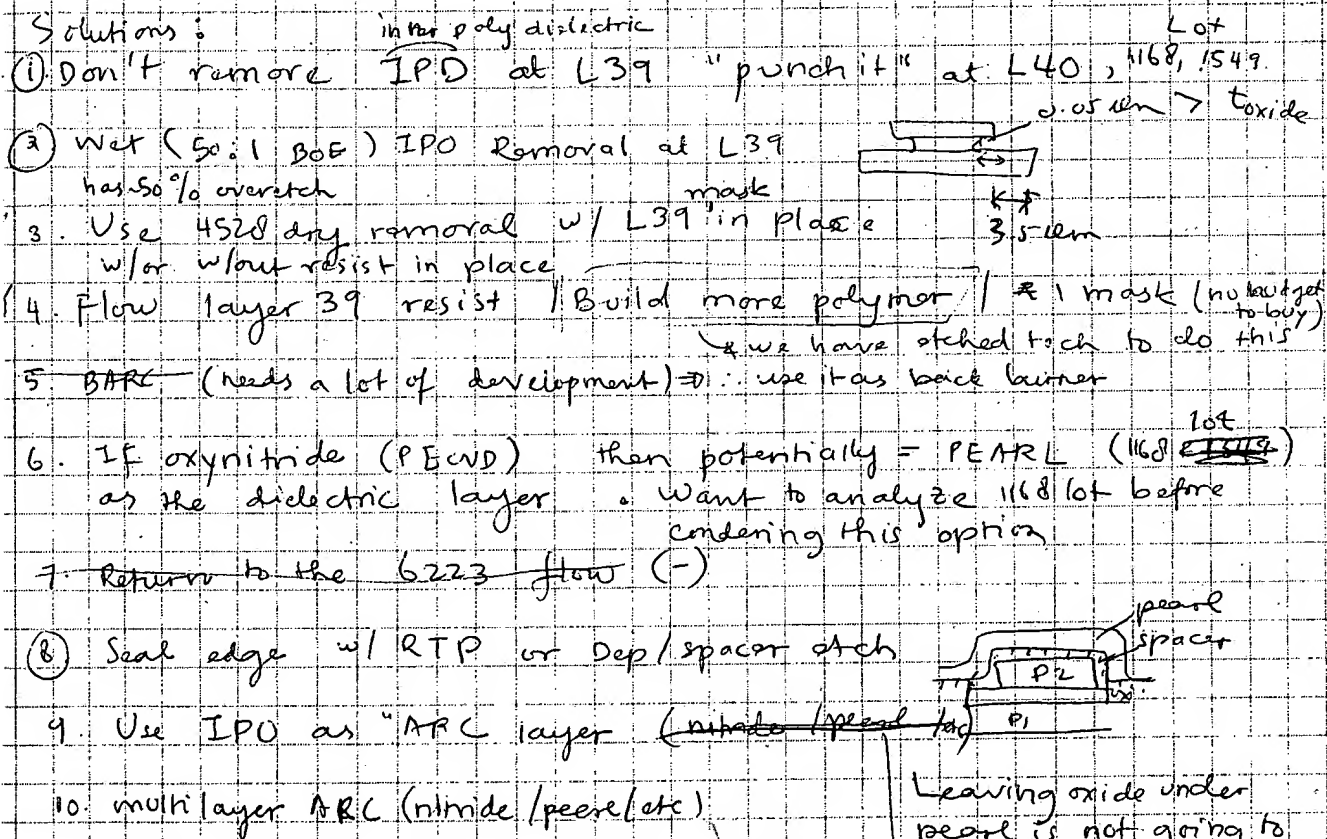 Solutions :
inter poly dielectric
Lot
① Don't remove IPD at L39 "punch it" at L40, 1168, 1549.
0.05 um > toxide
② Wet (50:1 BOE) IPO Removal at L39
has 50% overetch
mask
3. Use 4528 dry removal w/ L39 in place
3.5 um
w/or w/out resist in place
4. Flow layer 39 resist / Build more polymer / * 1 mask (no budget
to buy)
* we have etched tech to do this
5. BARC (needs a lot of development) ⇒ ∴ use it as back burner
lot
6. If oxynitride (PECVD) then potentially = PEARL (1168
as the dielectric layer . Want to analyze 1168 lot before
condering this option
7. Return to the 6223 flow (-)
pearl
spacer
⑧ Seal edge w/ RTP or Dep/spacer etch
P2
9. Use IPO as "ARC layer (nitride/pearl/etc)
P1
10. multilayer ARC (nitride/peere/etc)
Leaving oxide under
pearl is not going to